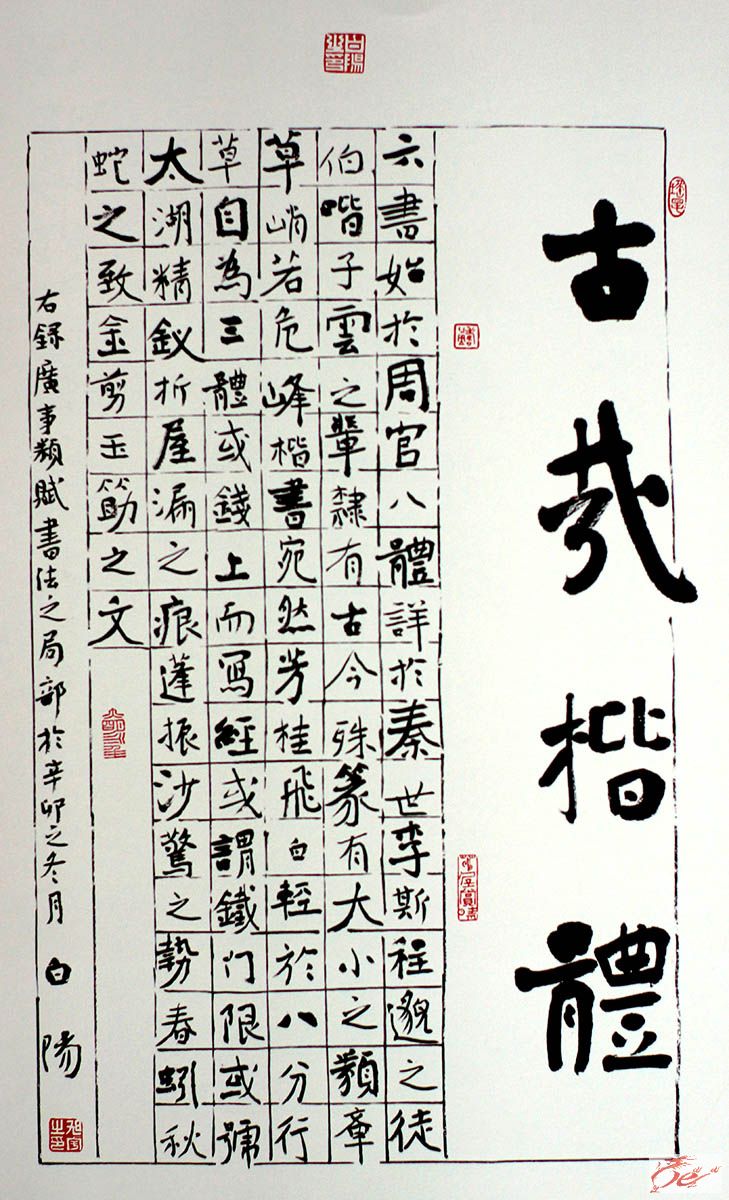 古哉楷體
六書始於周官八體詳於秦世李斯程邈之徒
伯喈子雲之輩隸有古今殊篆有大小之類章
草峭若危峰楷書宛然芳桂飛白輕於八分行
草自為三體或錢上而寫經或謂鐵門限或號
太湖精釵折屋漏之痕蓬振沙驚之勢春蚓秋
蛇之致金剪玉筯之文
右錄廣事類賦書法之局部於辛卯之冬月 白陽